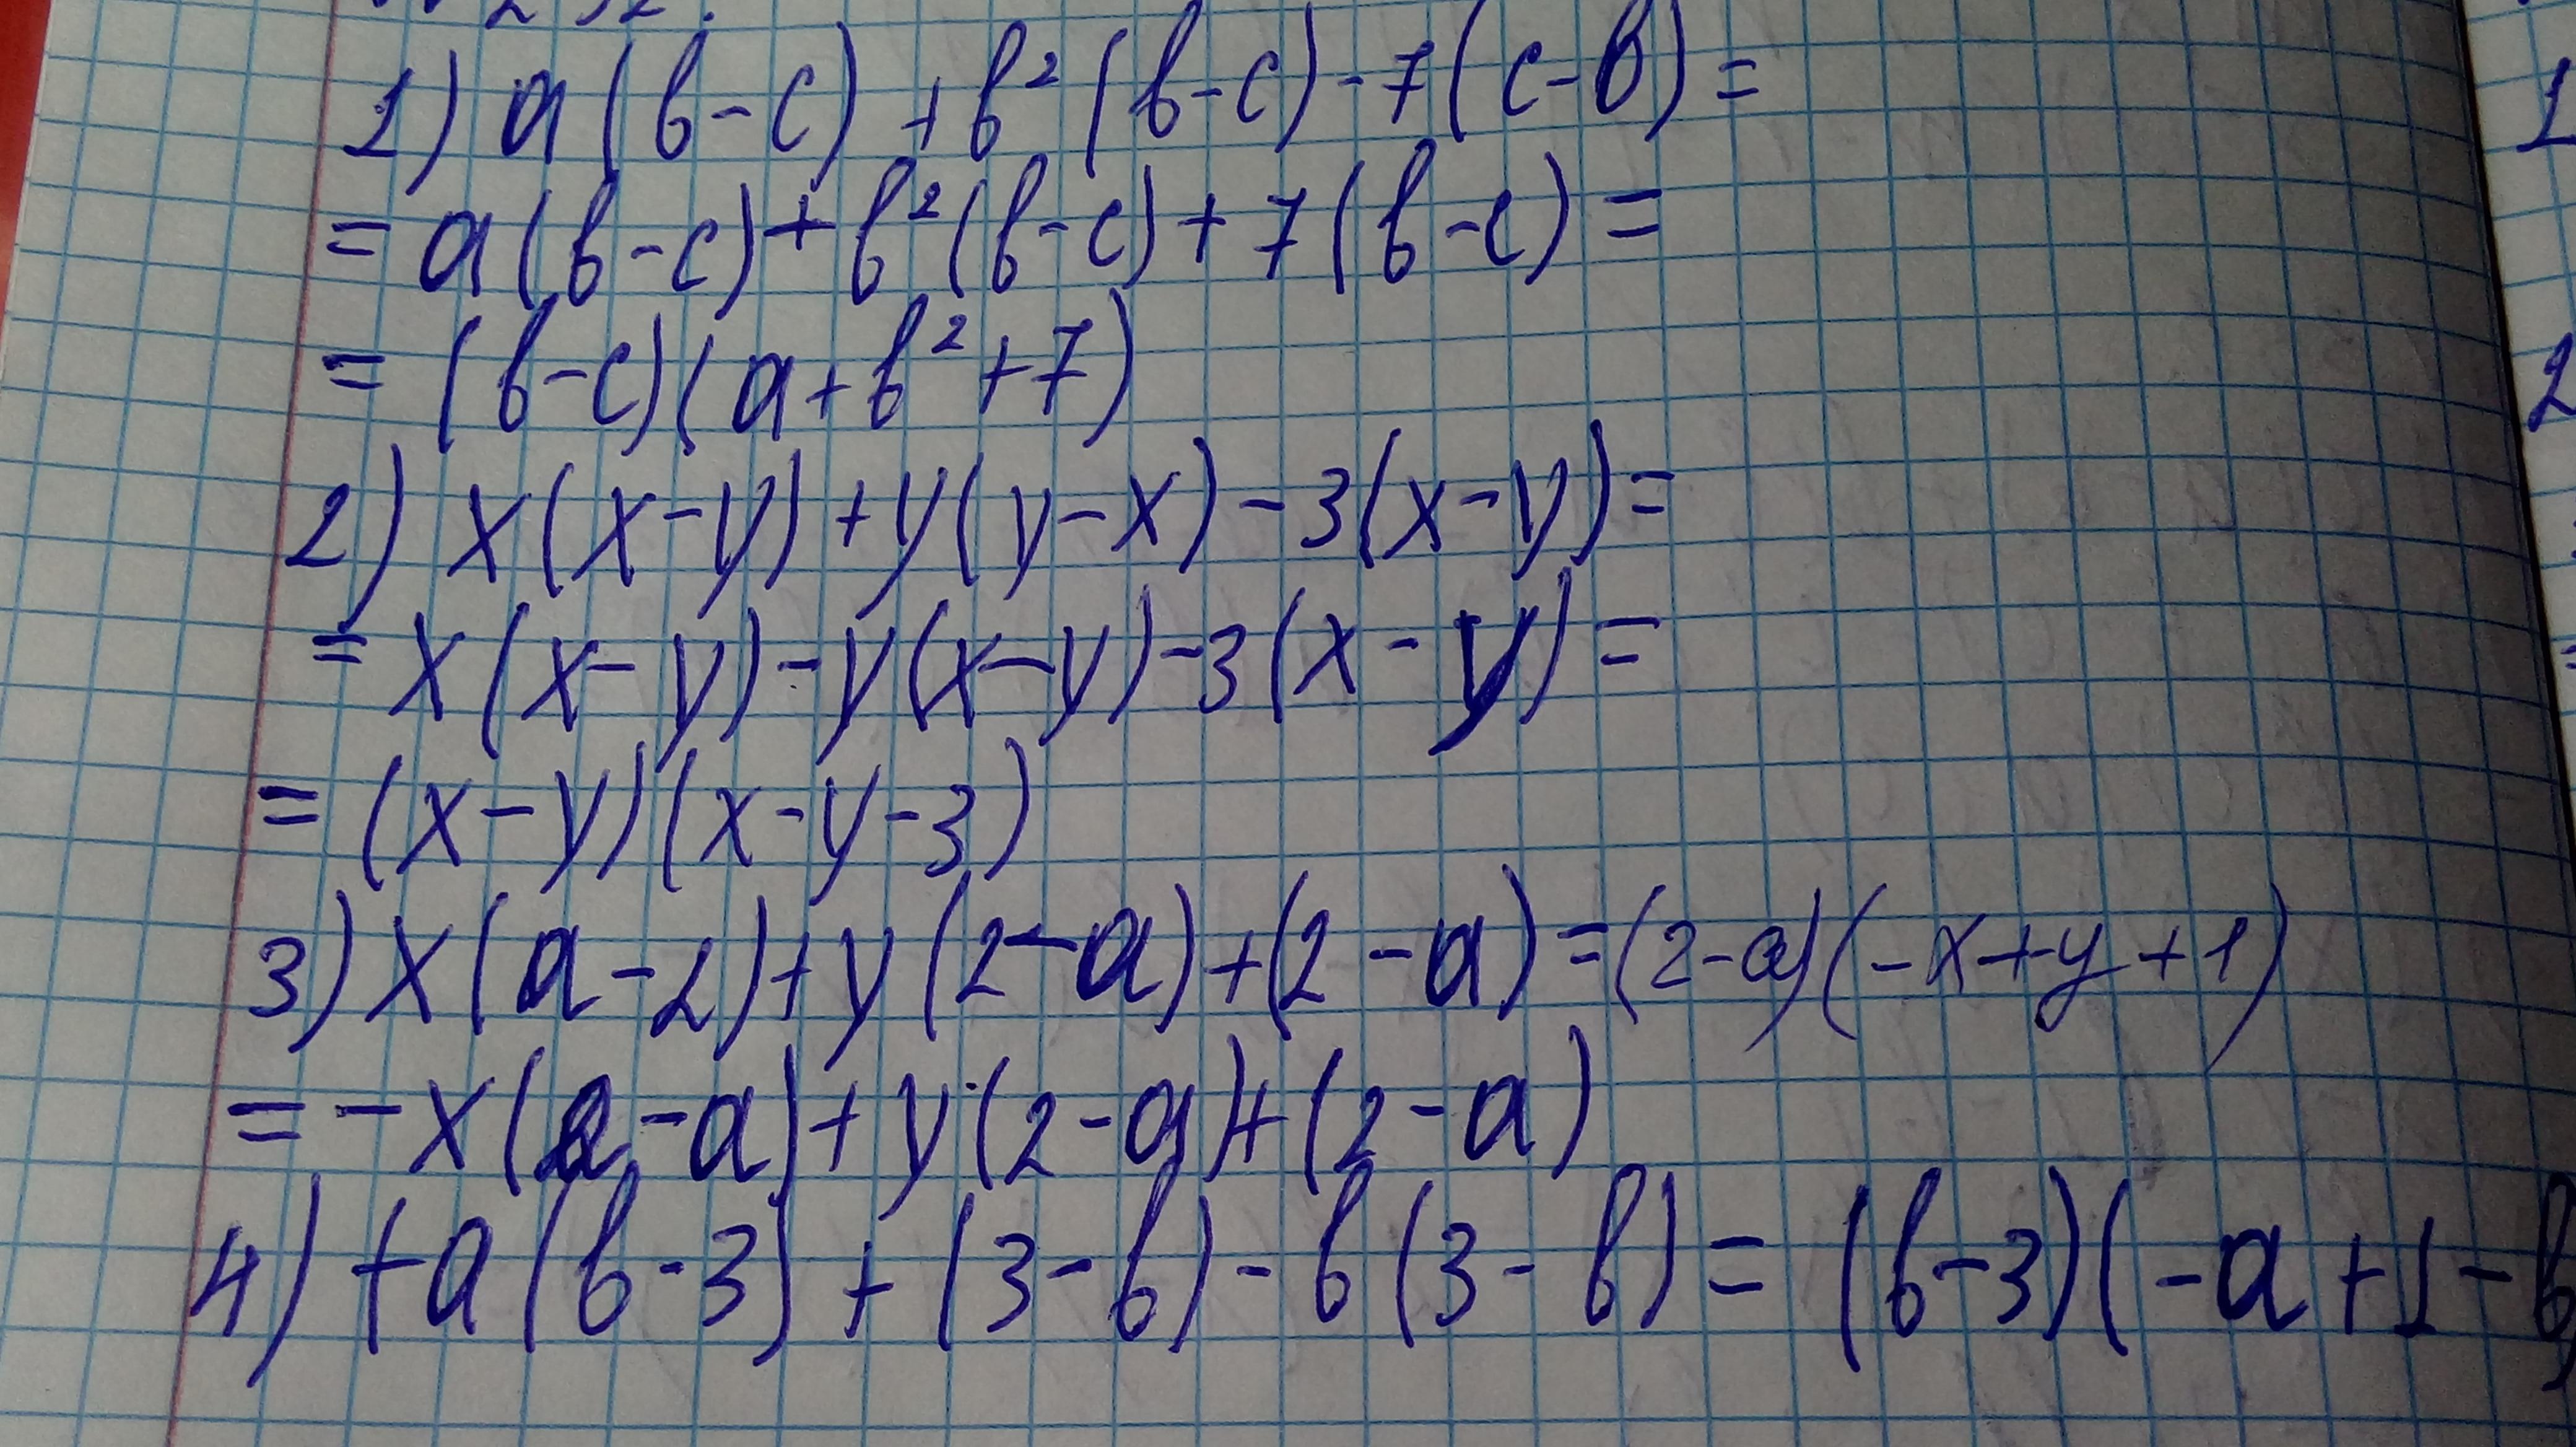 1) a(b-c)+b²(b-c)-7(c-b)=
=a(b-c)+b²(b-c)+7(b-c)=
=(b-c)(a+b²+7)
2) x(x-y)+y(y-x)-3(x-y)=
=x(x-y)-y(x-y)-3(x-y)=
=(x-y)(x-y-3)
3) x(a-2)+y(2-a)+(2-a)=(2-a)(-x+y+1)
=-x(2-a)+y(2-a)+(2-a)
4) +a(b-3)+(3-b)-b(3-b)=(b-3)(-a+1-b)
1
2